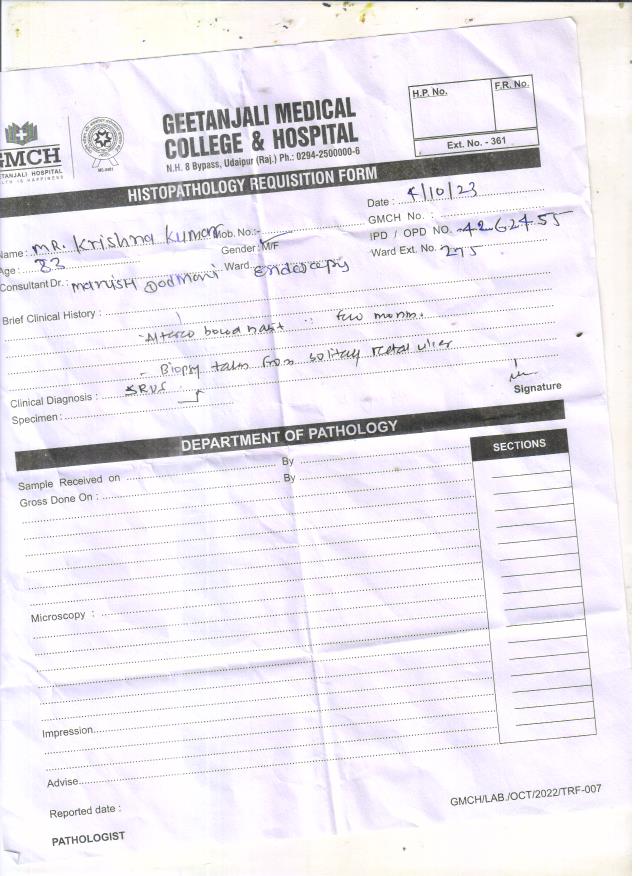 GMCH
GEETANJALI HOSPITAL
HEALTH IS HAPPINESS
GEETANJALI MEDICAL
COLLEGE & HOSPITAL
N.H. 8 Bypass, Udaipur (Raj.) Ph.: 0294-2500000-6
H.P. No. F.R. No.
Ext. No. - 361
HISTOPATHOLOGY REQUISITION FORM
Date : 4/10/23
GMCH No. :
Name : MR. Krishna Kumar Mob. No.:-
IPD / OPD NO. 4262455
Age : 83 Gender : M/F
Ward Ext. No. 275
Consultant Dr. : Manish Dodmani Ward Endoscopy
Brief Clinical History :
Altered bowel habit few months.
- Biopsy taken from solitary rectal ulcer
Clinical Diagnosis : SRUS
Signature
Specimen :
DEPARTMENT OF PATHOLOGY
SECTIONS
Sample Received on By
Gross Done On : By
Microscopy :
Impression
Advise
Reported date :
GMCH/LAB./OCT/2022/TRF-007
PATHOLOGIST